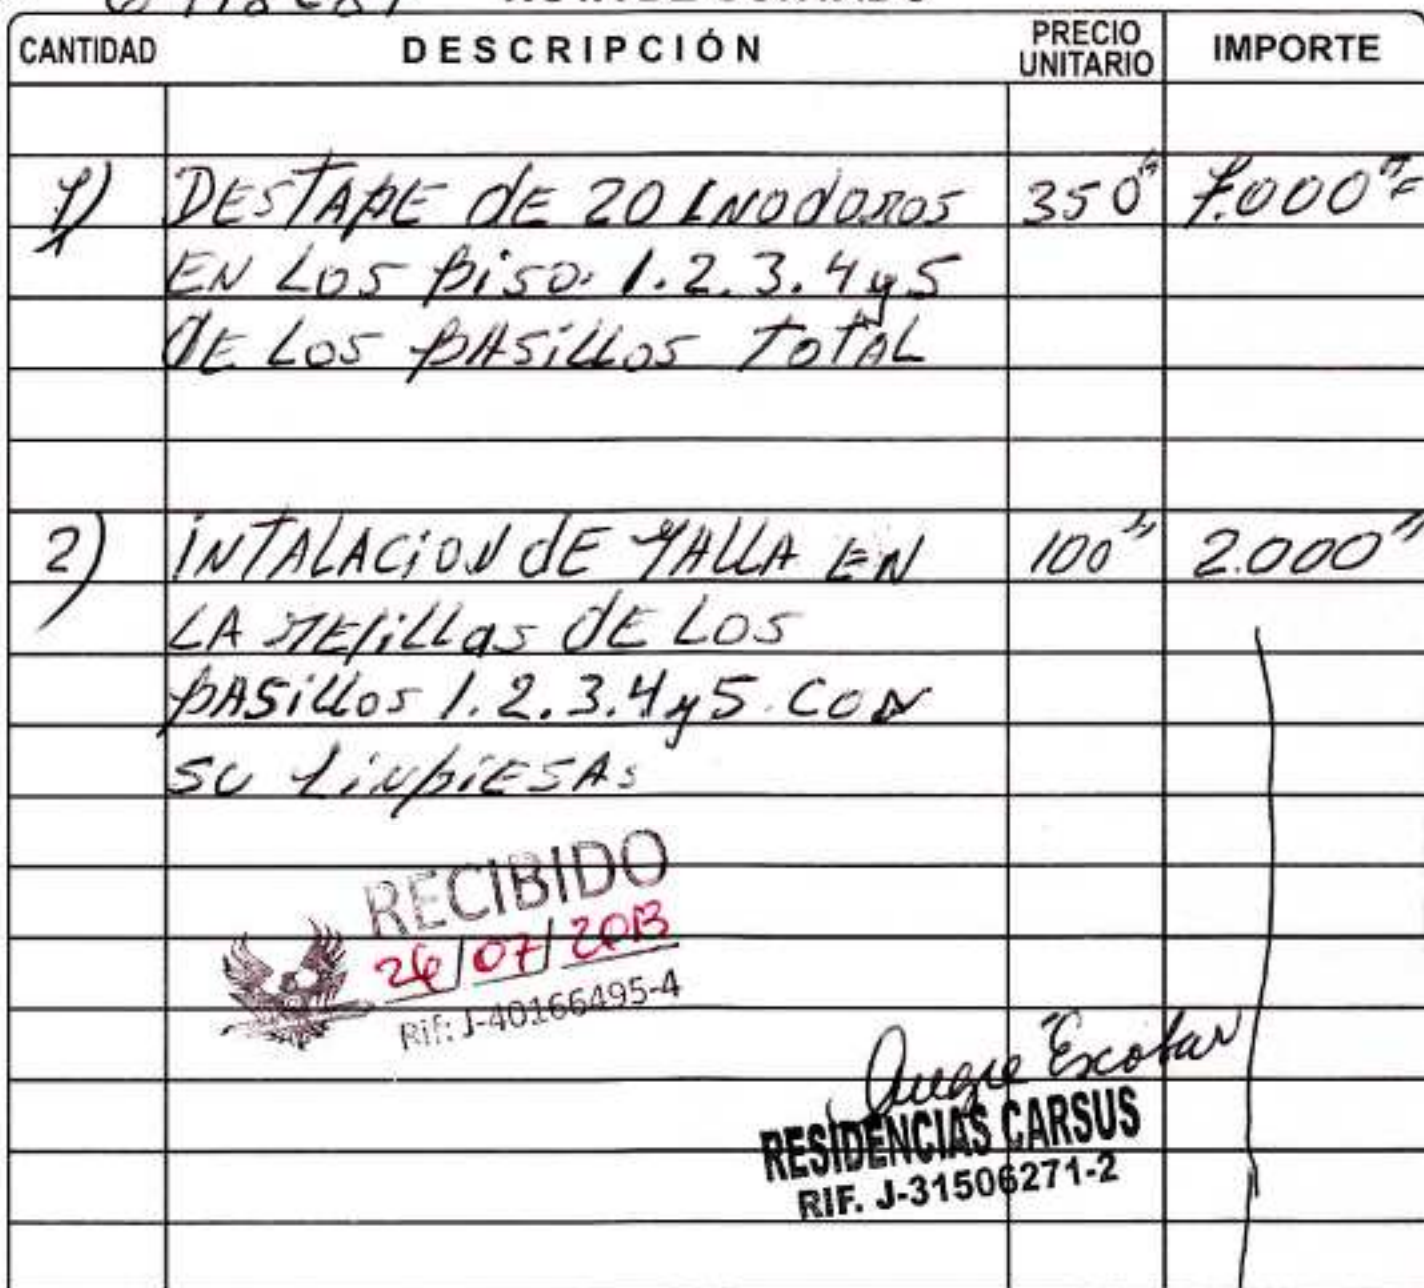 CANTIDAD DESCRIPCIÓN PRECIO UNITARIO IMPORTE
1) DESTAPE dE 20 INOdOROS 350" 7.000"=
EN LOS PISO. 1.2.3.4 y 5
DE LOS PASiLLOS TOTAL
2) iNTALACiON dE MALLA EN 100" 2.000"
LA REJiLLas DE LOS
PASiLLos 1.2.3.4 y 5 CON
SU LiNPiESA
RECIBIDO
26/07/2013
Rif: J-40166495-4
Escobar
RESIDENCIAS CARSUS
RIF. J-31506271-2